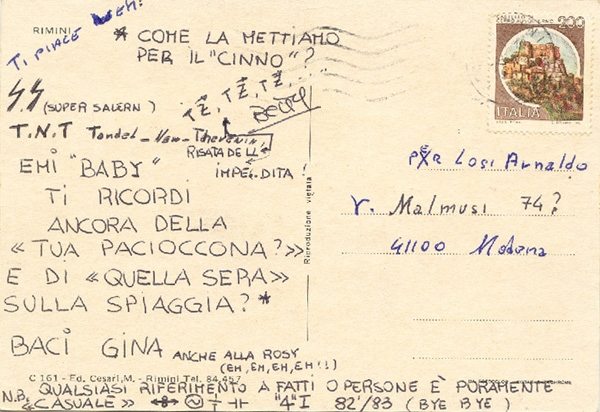 RIMINI
TI PIACE EH!
* COME LA METTIAMO
PER IL "CINNO"?
TŻ, TŻ, TŻ, ...
SS (SUPER SALERN)
T.N.T Tondel-New-
RISATA DELL'
IMPEDITA!
EMI "BABY"
TI RICORDI
ANCORA DELLA
«TUA PACIOCCONA?»
E DI «QUELLA SERA»
SULLA SPIAGGIA? *
BACI GINA ANCHE ALLA ROSY
(EH, EH, EH, EH!!)
C 161 - Ed. Cesari, M. - Rimini Tel. 84.457
N.B. QUALSIASI RIFERIMENTO A FATTI O PERSONE È PURAMENTE
«CASUALE» "4" I 82'/83 (BYE BYE)
Riproduzione vietata
200
ITALIA
PER Losi Arnaldo
V. Malmusi 74?
41100 Modena